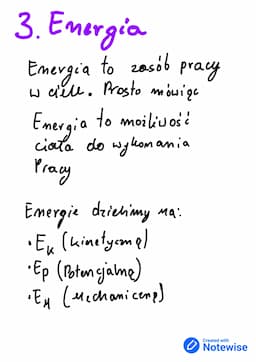 3. Energia
Energia to zasób pracy
w ciele. Prosto mówiąc
Energia to możliwość
ciała do wykonania
Pracy
Energie dzielimy na:
• Ek (kinetyczną)
• Ep (Potencjalną)
• EM (Mechaniczną)
Created with
Notewise